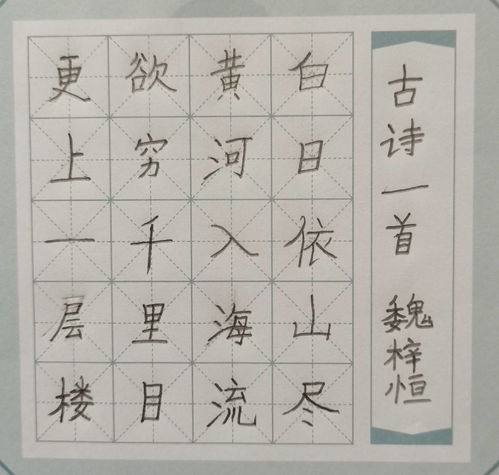 古诗一首 魏梓恒
白日依山尽
黄河入海流
欲穷千里目
更上一层楼